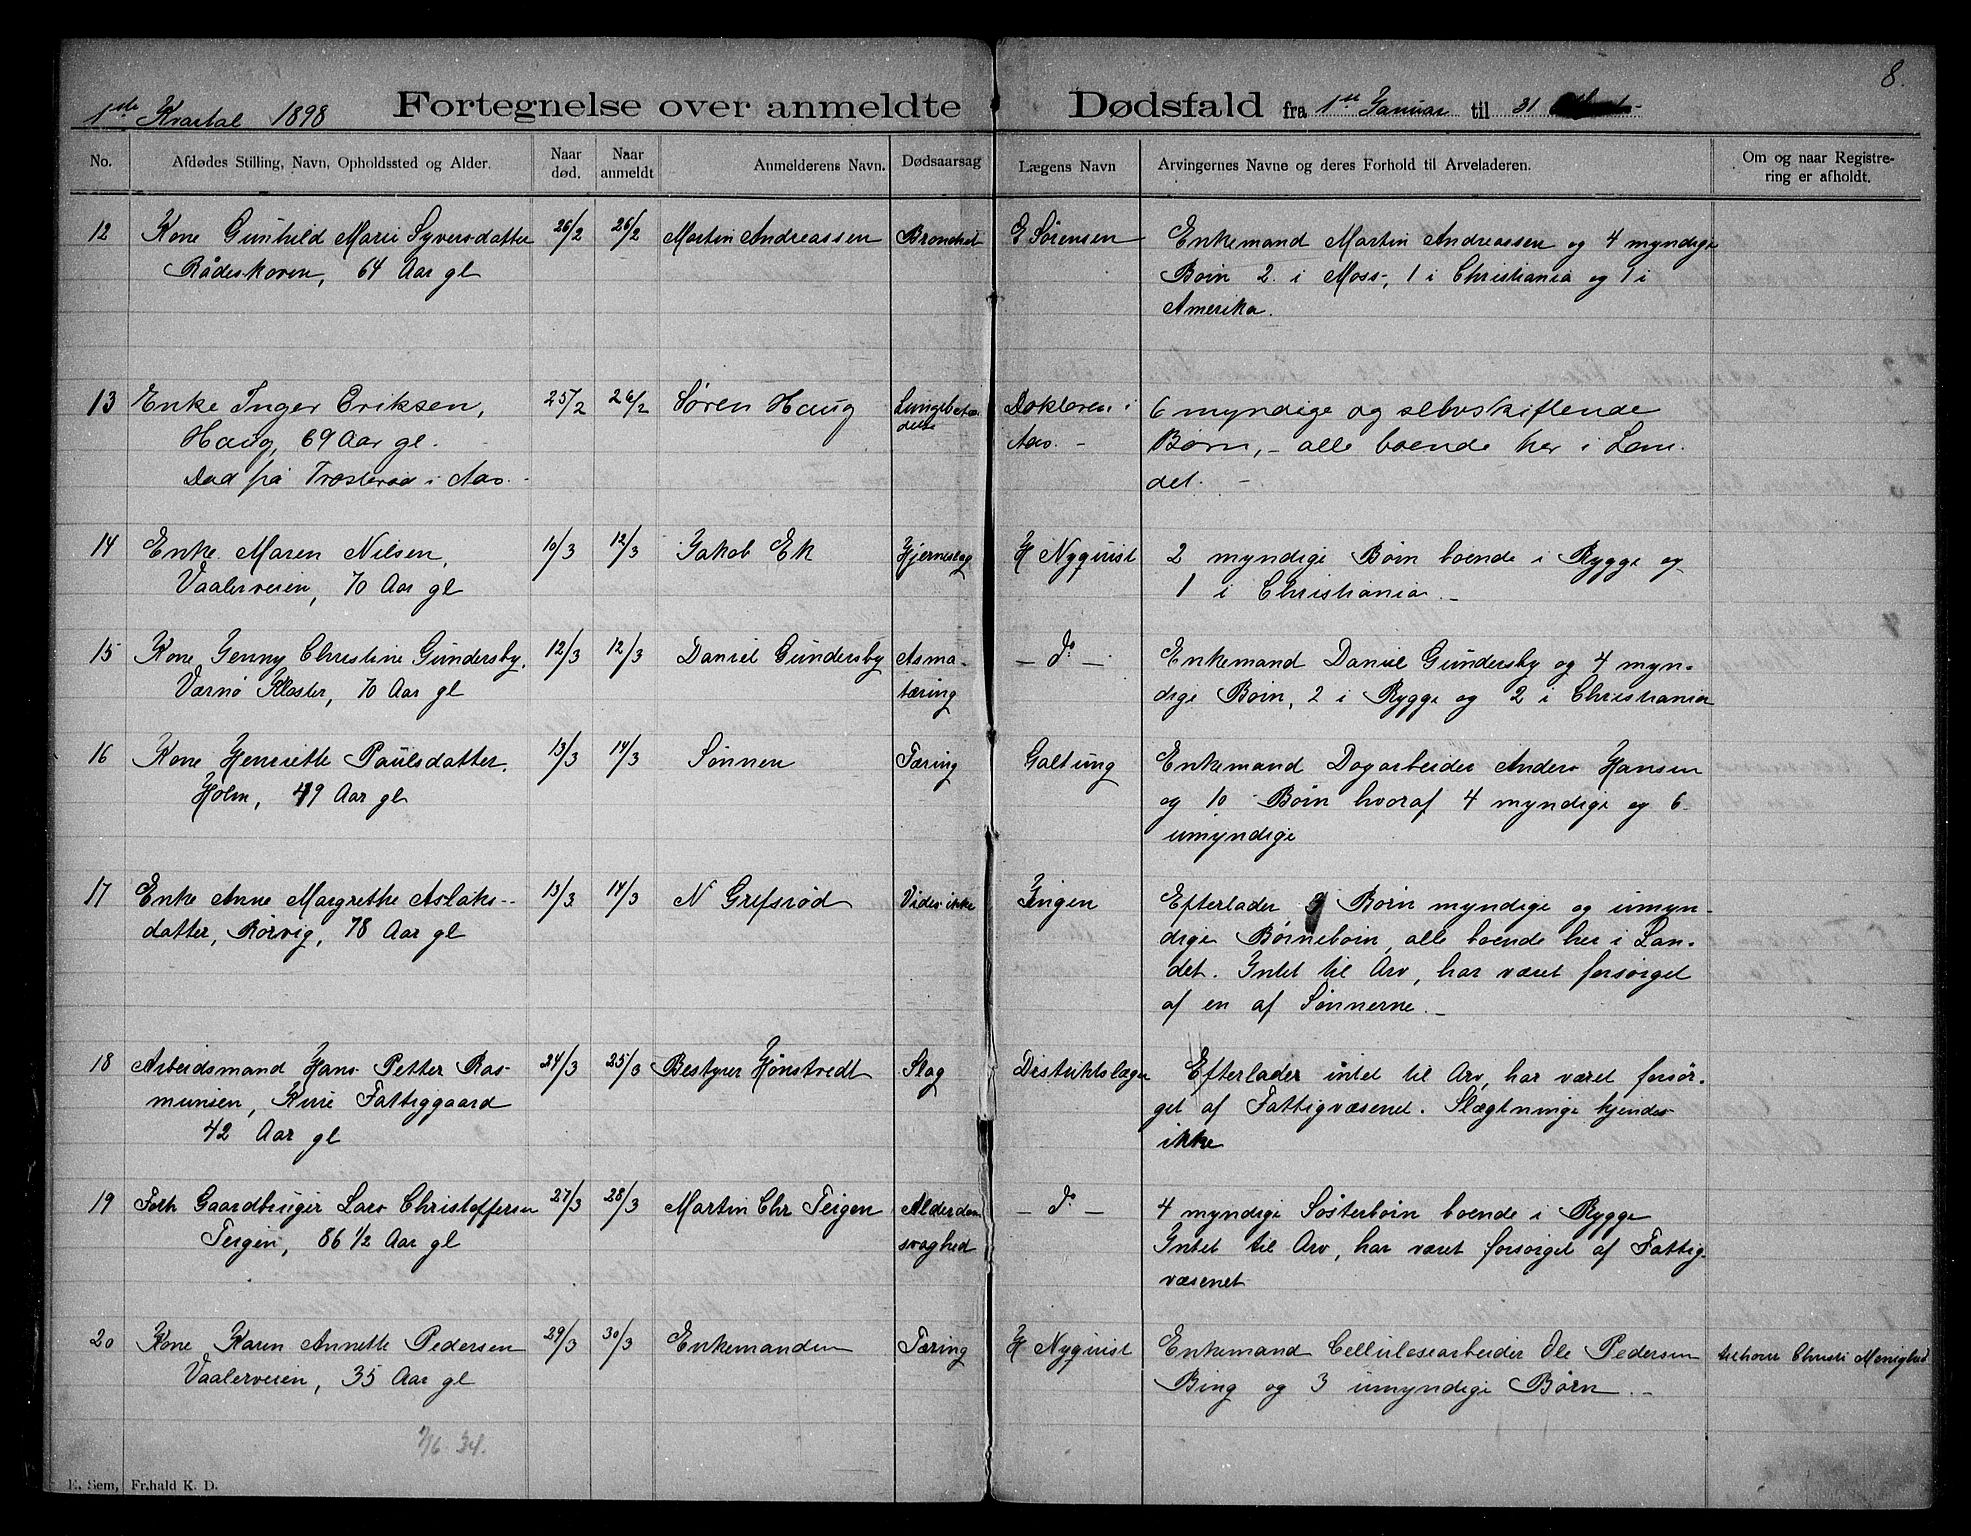 8.
1ste Kvartal 1898 Fortegnelse over anmeldte Dødsfald fra 1ste Januar til 31
No. Afdødes Stilling, Navn, Opholdssted og Alder. Naar død. Naar anmeldt Anmelderens Navn. Dødsaarsag Lægens Navn Arvingernes Navne og deres Forhold til Arveladeren. Om og naar Registrering er afholdt.
12 Kone Gunhild Marie Syversdatter 26/2 26/2 Martin Andreassen Bronchit G Sørensen Enkemand Martin Andreassen og 4 myndige
Rådeskoven, 64 Aar gl Børn 2 i Moss, 1 i Christiania og 1 i
Amerika.
13 Enke Inger Eriksen, 25/2 26/2 Søren Haug Lungebetæn Doktoren i 6 myndige og selvskiftende
Haug, 69 Aar gl. delse Aas. - Børn, - alle boende her i Lan-
Død på Træsterød i Aas. - det. -
14 Enke Maren Nilsen, 10/3 12/3 Jakob Ek Hjerneslag H Nyquist 2 myndige Børn boende i Rygge og
Vaalerveien, 70 Aar gl 1 i Christiania. -
15 Kone Jenny Christine Gundersby, 12/3 12/3 Daniel Gundersby Asma- - do - Enkemand Daniel Gundersby og 4 myn-
Værnø Kloster, 70 Aar gl tæring dige Børn, 2 i Rygge og 2 i Christiania
16 Kone Henriette Paulsdatter, 13/3 14/3 Sønnen Tæring Galtung Enkemand Dagarbeider Anders Hansen
Holm, 49 Aar gl og 10 Børn hvoraf 4 myndige og 6
umyndige
17 Enke Anne Margrethe Aslaks- 13/3 14/3 N Grefsrød Vides ikke Ingen Efterlader 9 Børn myndige og umyn-
datter, Rørvig, 78 Aar gl dige Børnebørn, alle boende her i Lan-
det. Intet til Arv, har været forsørget
af en af Sønnerne. -
18 Arbeidsmand Hans Petter Ras- 24/3 25/3 Bestyrer Hønstvedt Slag Distriktslægen Efterlader intet til Arv, har været forsør-
munsen, Kure Fattiggaard get af Fattigvæsenet. Slægtninge kjendes
42 Aar gl ikke
19 Forh Gaardbruger Lars Christoffersen 27/3 28/3 Martin Chr Teigen Alderdom - do - 4 myndige Søsterbørn boende i Rygge
Teigen, 86 1/2 Aar gl svaghed Intet til Arv, har været forsørget af Fattig-
væsenet
20 Kone Karen Annette Pedersen 29/3 30/3 Enkemanden Tæring H Nyquist Enkemand Cellulosearbeider Ole Pedersen tilhører Christi Menighed
Vaalerveien, 35 Aar gl Bing og 3 umyndige Børn. -
2/6 34.
E. Sem, Fr.hald K. D.